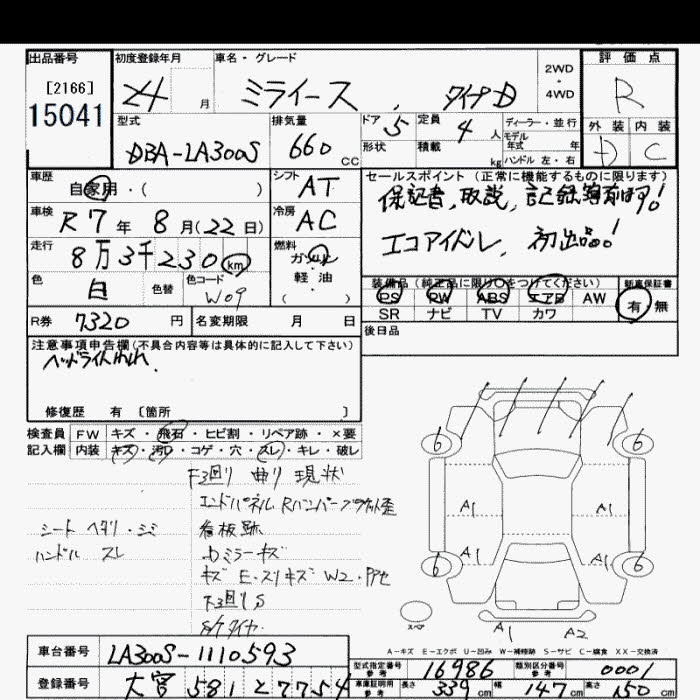 出品番号
[2166]
15041
初度登録年月
24 月
車名・グレード
ミライース
2WD
・
4WD
評価点
R
型式
DBA-LA300S
排気量
660 CC
ドア 5
形状
定員 4 人
積載 kg
ディーラー・並行
モデル
年式 年
ハンドル 左・右
外装 内装
D C
車歴
自家用・( )
シフト AT
セールスポイント (正常に機能するものに限ります)
保証書、取説、記録簿有ります!
エコアイドル、初出品!
車検
R7年 8月(22日)
冷房 AC
走行
8万3千230 km
燃料
ガソリン
・
軽・油
( )
色
白
色替
色コード
W09
装備品 (純正品に限り○をつけてください)
PS PW ABS エアB AW
SR ナビ TV カワ
新車保証書
有 無
R券 7320 円
名変期限 月 日
後日品
注意事項申告欄(不具合内容等は具体的に記入して下さい)
修復歴 有 〔箇所 〕
検査員 FW キズ・飛石・ヒビ割・リペア跡・×要
記入欄 内装 キズ・汚れ・コゲ・穴・スレ・キレ・破レ
F3回り 曲り 現状
シート ヘタリ・シミ
看板跡
ハンドル スレ
ミラーキズ
6 6
A1 A1
A1 A1
6 6
スペア
A1 A2
A-キズ E-エクボ U-凹み W-補修跡 S-サビ C-腐食 XX-交換済
車台番号 LA300S-1110593
登録番号 大宮 581 と 7754
型式指定番号
参考
16986
類別区分番号
参考
0001
車庫証明用
参考
長さ 339 cm 幅 147 cm 高さ 150 cm